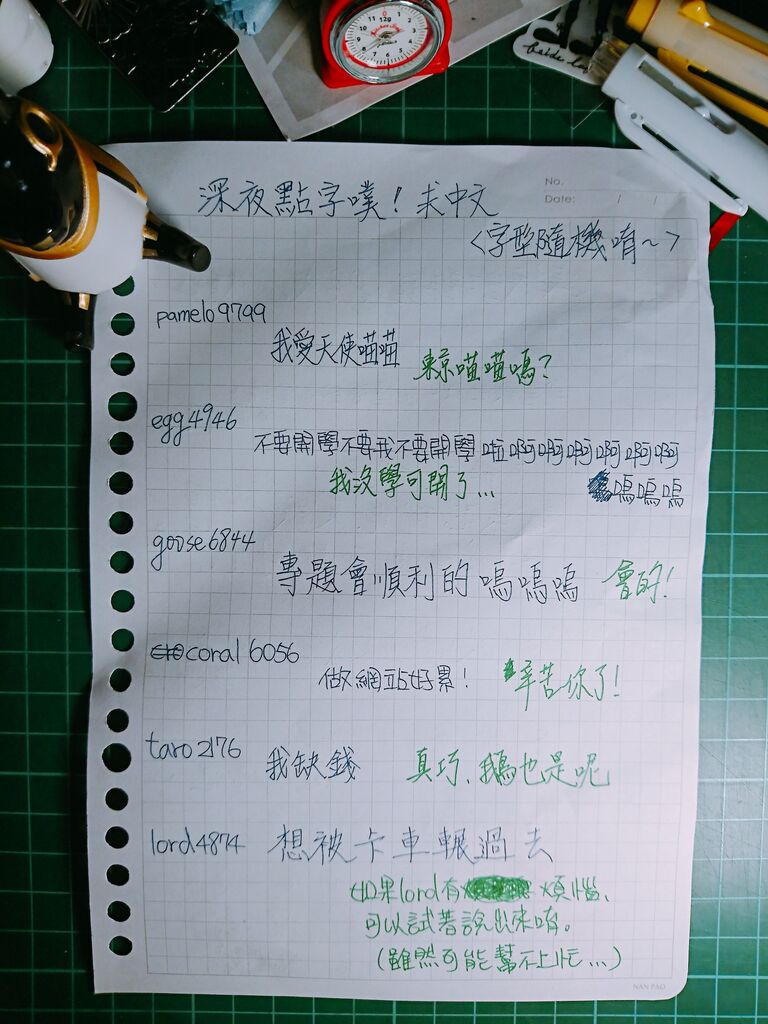 No.
Date: / /
深夜點字噗！求中文
<字型隨機唷~>
pamelo9799
我愛天使喵喵
東京喵喵嗎？
egg4946
不要開學不要我不要開學啦啊啊啊啊啊啊
我沒學可開了...
嗚嗚嗚
goose6844
專題會順利的嗚嗚嗚
會的！
coral6056
做網站好累！
辛苦你了！
taro2176
我缺錢
真巧、我鵝也是呢
lord4874
想被卡車輾過去
如果lord有煩惱、
可以試著說出來唷。
(雖然可能幫不上忙...)
NAN PAO